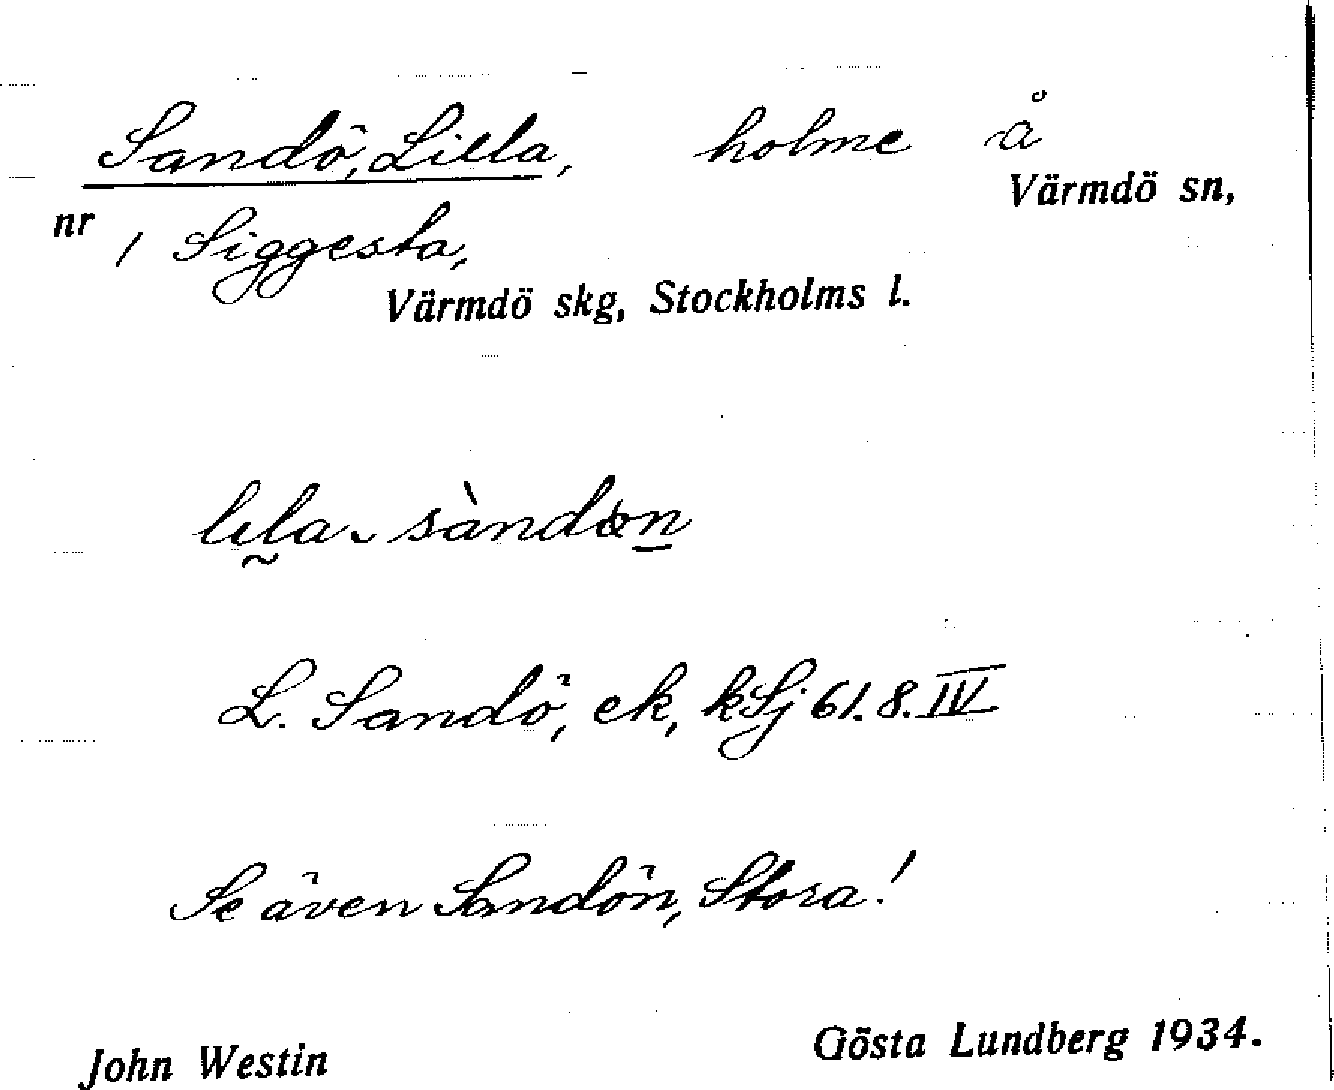 Sandö, Lilla, holme å
Värmdö sn,
nr 1 Siggesta,
Värmdö skg, Stockholms l.
lila sàndön
L. Sandö, ek, kSj 61.8.IV
Se även Sandön, Stora!
John Westin Gösta Lundberg 1934.